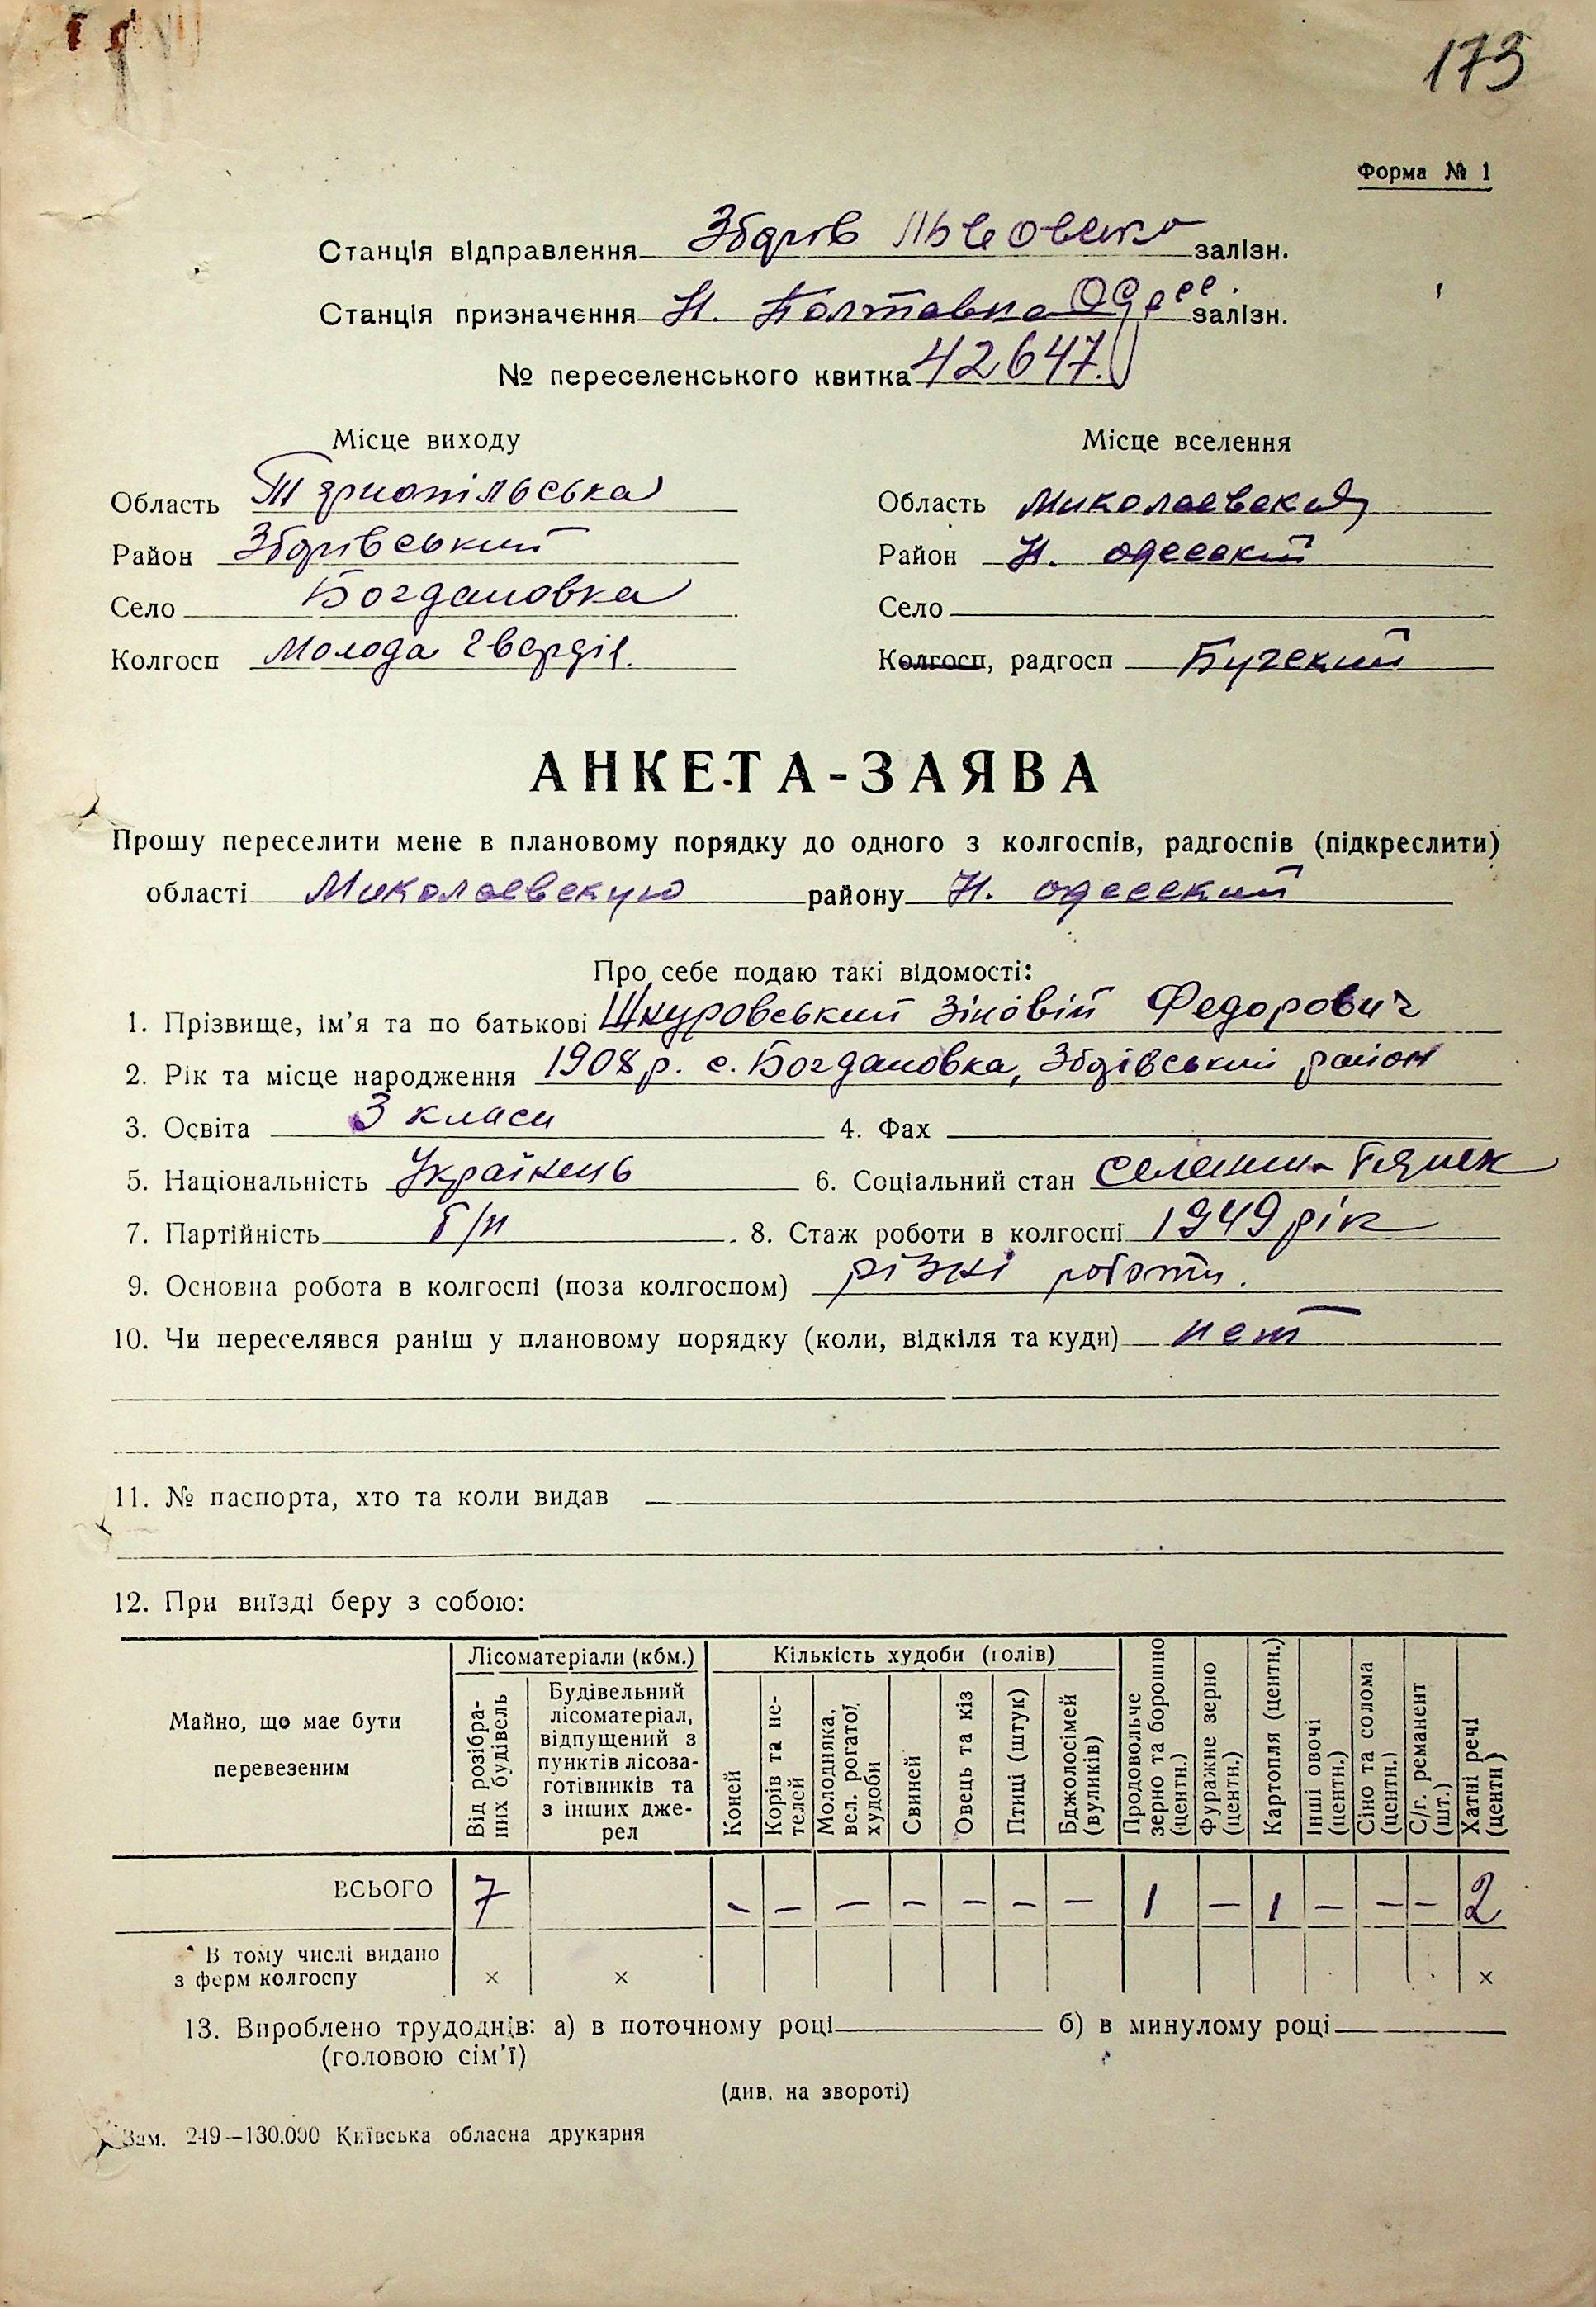 173
Форма № 1
Станція відправлення Зборів Львовско залізн.
Станція призначення Н. Полтавка Одесс. залізн.
№ переселенського квитка 42647.
Місце виходу
Місце вселення
Область Тернопільська
Область Миколаевская
Район Зборівський
Район Н. одесский
Село Богдановка
Село
Колгосп Молода гвардія.
Колгосп, радгосп Бугский
АНКЕТА-ЗАЯВА
Прошу переселити мене в плановому порядку до одного з колгоспів, радгоспів (підкреслити)
області Миколаевскую району Н. одесский
Про себе подаю такі відомості:
1. Прізвище, ім'я та по батькові Шкуровський Зіновій Федорович
2. Рік та місце народження 1908 р. с. Богдановка, Збрівський район
3. Освіта 3 класи 4. Фах
5. Національність Українець 6. Соціальний стан селянин-бідняк
7. Партійність б/п 8. Стаж роботи в колгоспі 1949 рік
9. Основна робота в колгоспі (поза колгоспом) різні роботи.
10. Чи переселявся раніш у плановому порядку (коли, відкіля та куди) нет
11. № паспорта, хто та коли видав
12. При виїзді беру з собою:
Майно, що має бути перевезеним
Лісоматеріали (кбм.)
Кількість худоби (голів)
Від розібраних будівель
Будівельний лісоматеріал, відпущений з пунктів лісозаготівників та з інших джерел
Коней
Корів та нетелей
Молодняка, вел. рогатої худоби
Свиней
Овець та кіз
Птиці (штук)
Бджолосімей (вуликів)
Продовольче зерно та борошно (центн.)
Фуражне зерно (центн.)
Картопля (центн.)
Інші овочі (центн.)
Сіно та солома (центн.)
С/г. реманент (шт.)
Хатні речі (центн)
ВСЬОГО 7 - - - - - - - 1 - 1 - - - 2
В тому числі видано
з ферм колгоспу × × ×
13. Вироблено трудоднів: а) в поточному році б) в минулому році
(головою сім'ї)
(див. на звороті)
Зам. 249—130.000 Київська обласна друкарня